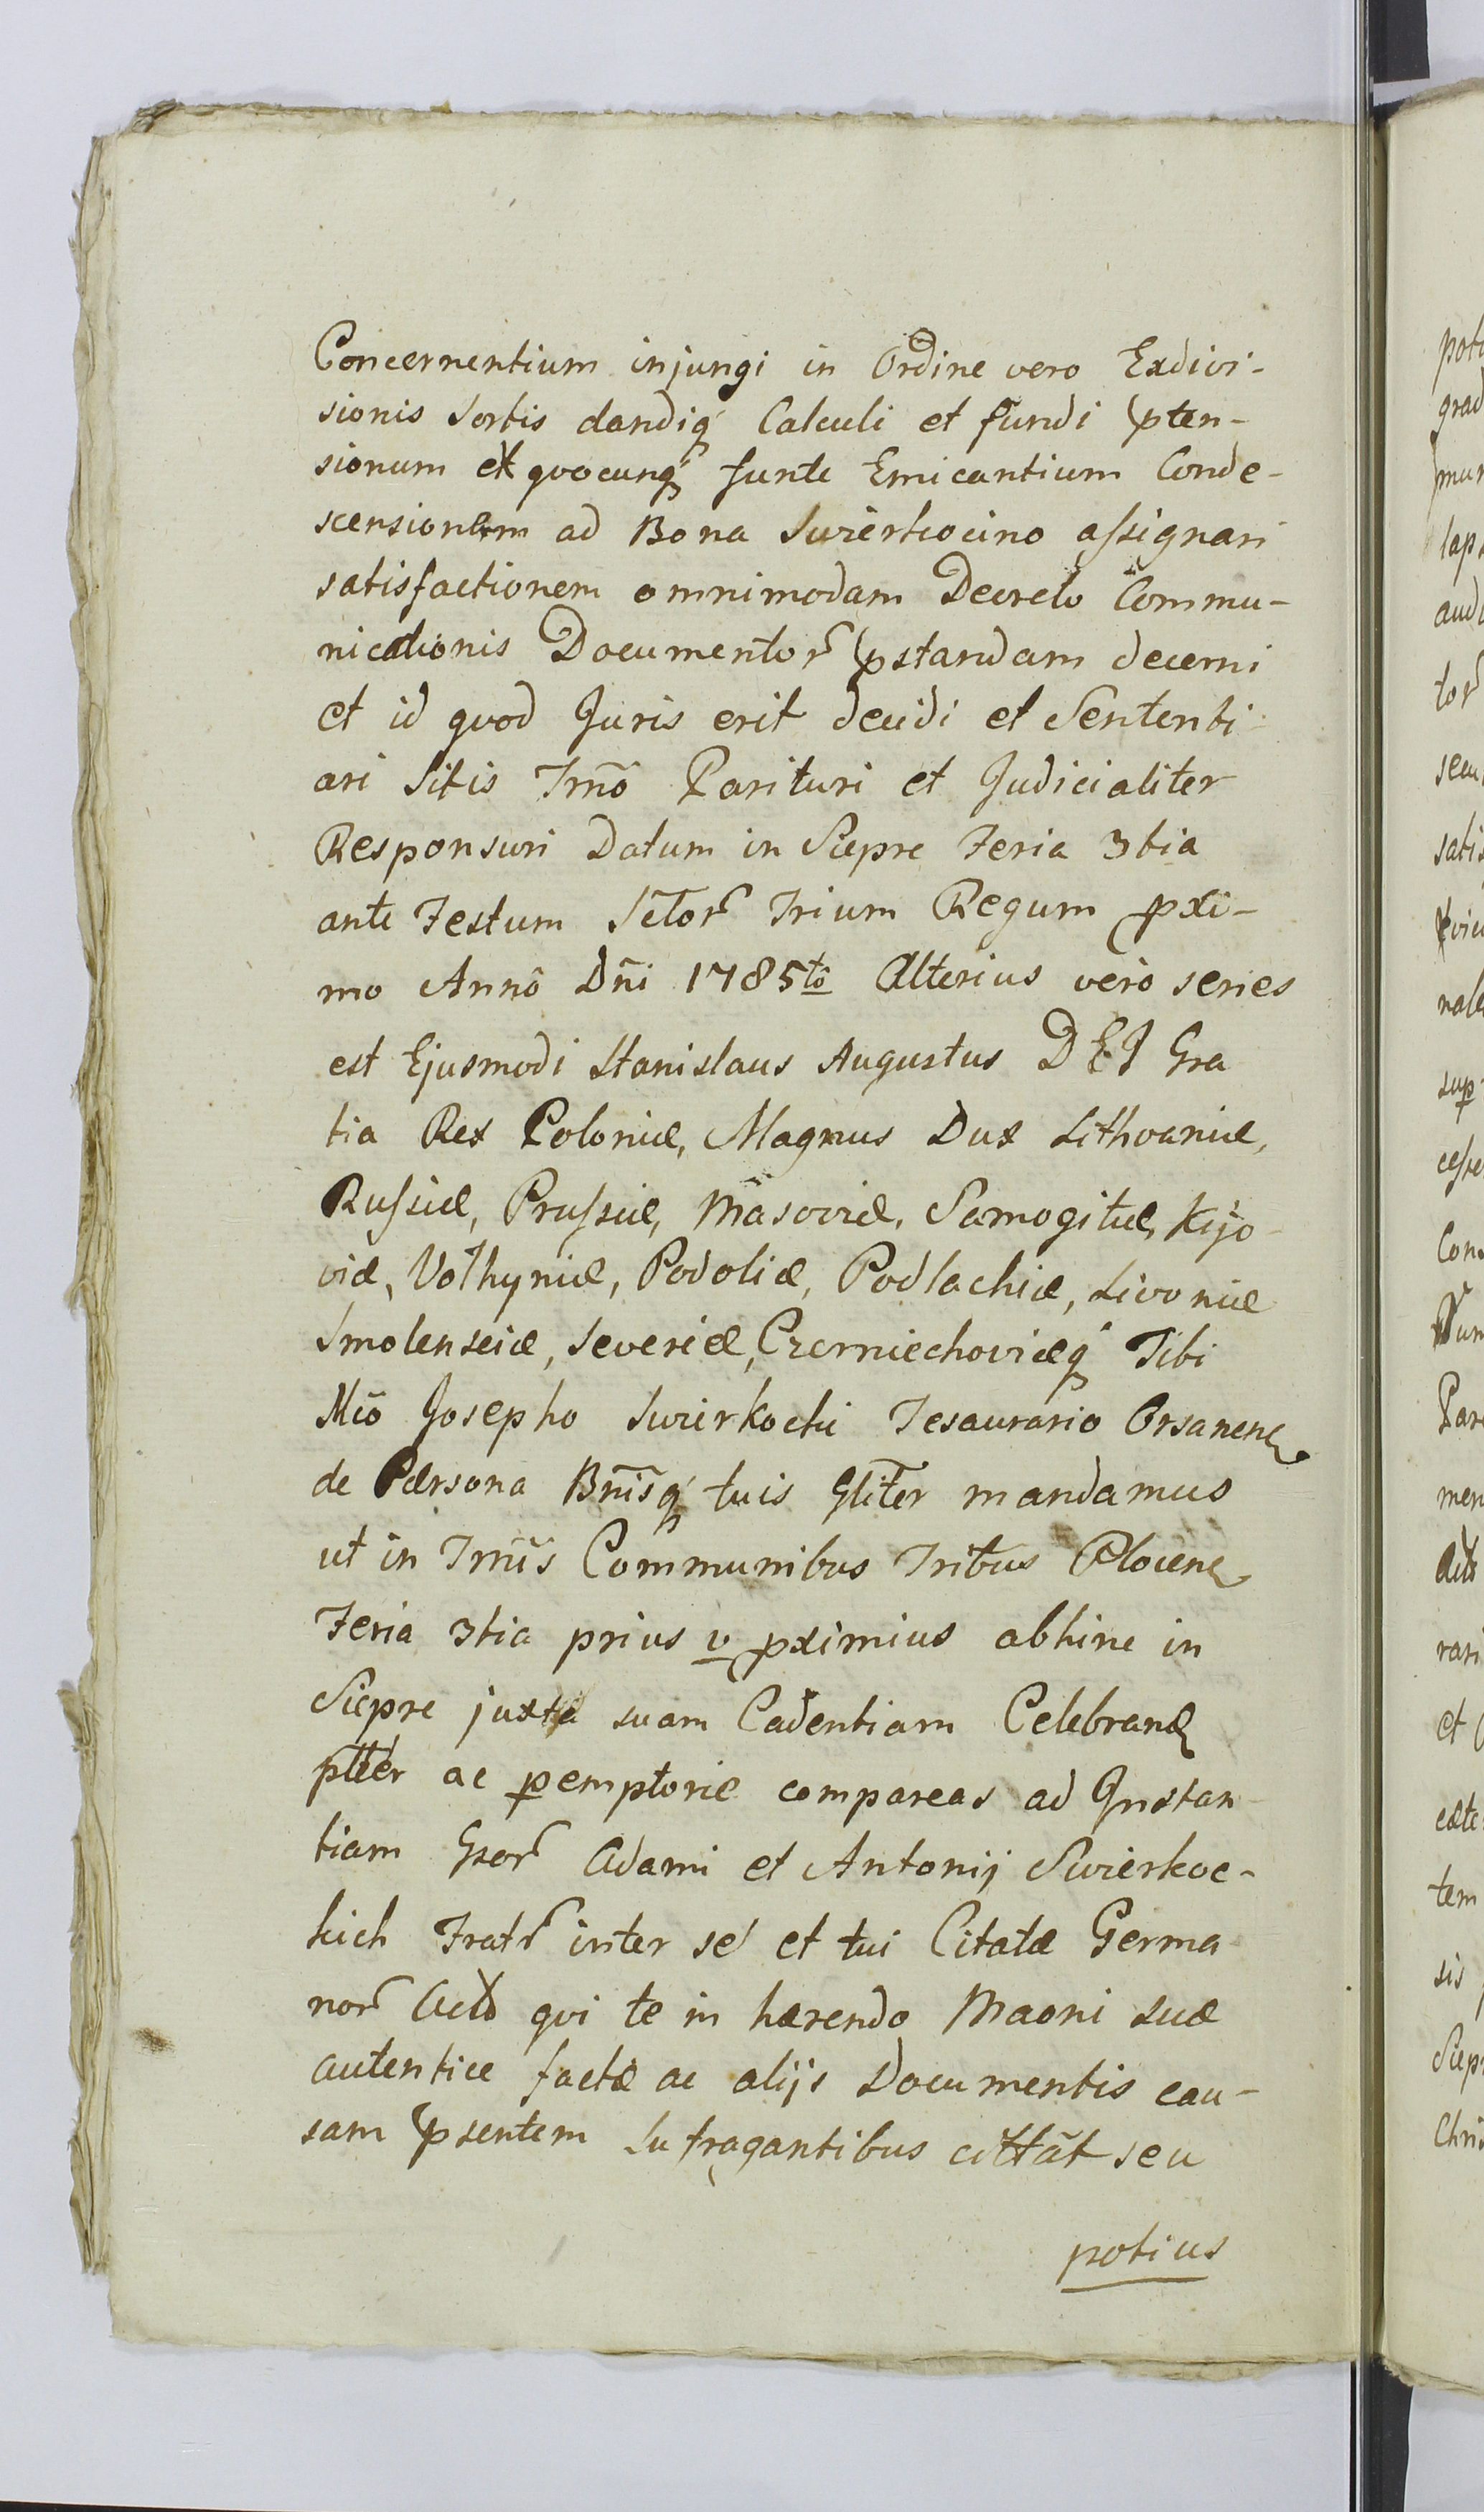 Concernentium injungi in Ordine vero Exdivi-
sionis Sortis dandiq́ Calculi et fundi pten-
sionum ex quocunq́ funte Emicantium Conde-
scensionem ad Bona Swierkocino assignari
satisfactionem omnimodam Decreto Commu-
nicationis Documentor pstandam decerni
et id quod Juris erit decidi et Sententi-
ari Sitis Tm̃o Parituri et Judicialiter
Responsuri Datum in Sieprc Feria 3tia
ante Festum Sctor̃ Trium Regum pxi-
mo Annô Dñi 1785tô Alterius verò series
est Ejusmodi Stanislaus Augustus DEI Gra
tia Rex Poloniæ, Magnus Dux Lithvaniæ,
Russiæ, Prussiæ, Masoviæ, Samogitiæ, Kijo-
viæ, Volhyniæ, Podoliæ, Podlachiæ, Livoniæ
Smolensciæ, Severiæ, Czerniechoviæq́ Tibi
Mco Josepho Swierkocki Tesaurario Orsanen
de Persona Bnisq́ tuis Gliter mandamus
ut in Tmis Communibus Tribus Plocen
Feria 3tia prius v pximius abhinc in
Sieprc juxta suam Cadentiam Celebrand
ptter ac pemptorie compareas ad Instan-
tiam Gsor Adami et Antonij Swierkoc-
kich Fratr inter se et tui Citatæ Germa-
nor Act qui te in hærendo Maoni suæ
autentice factæ ac alijs Documentis cau-
sam psentem sufragantibus cittãt seu
potius
pot
grad
mun
lap
aud
tor
secu
satis
vic
nale
sup
cesse
Con
um
Par
men
rari
et
cæte
tem
sis
Siep
Chris